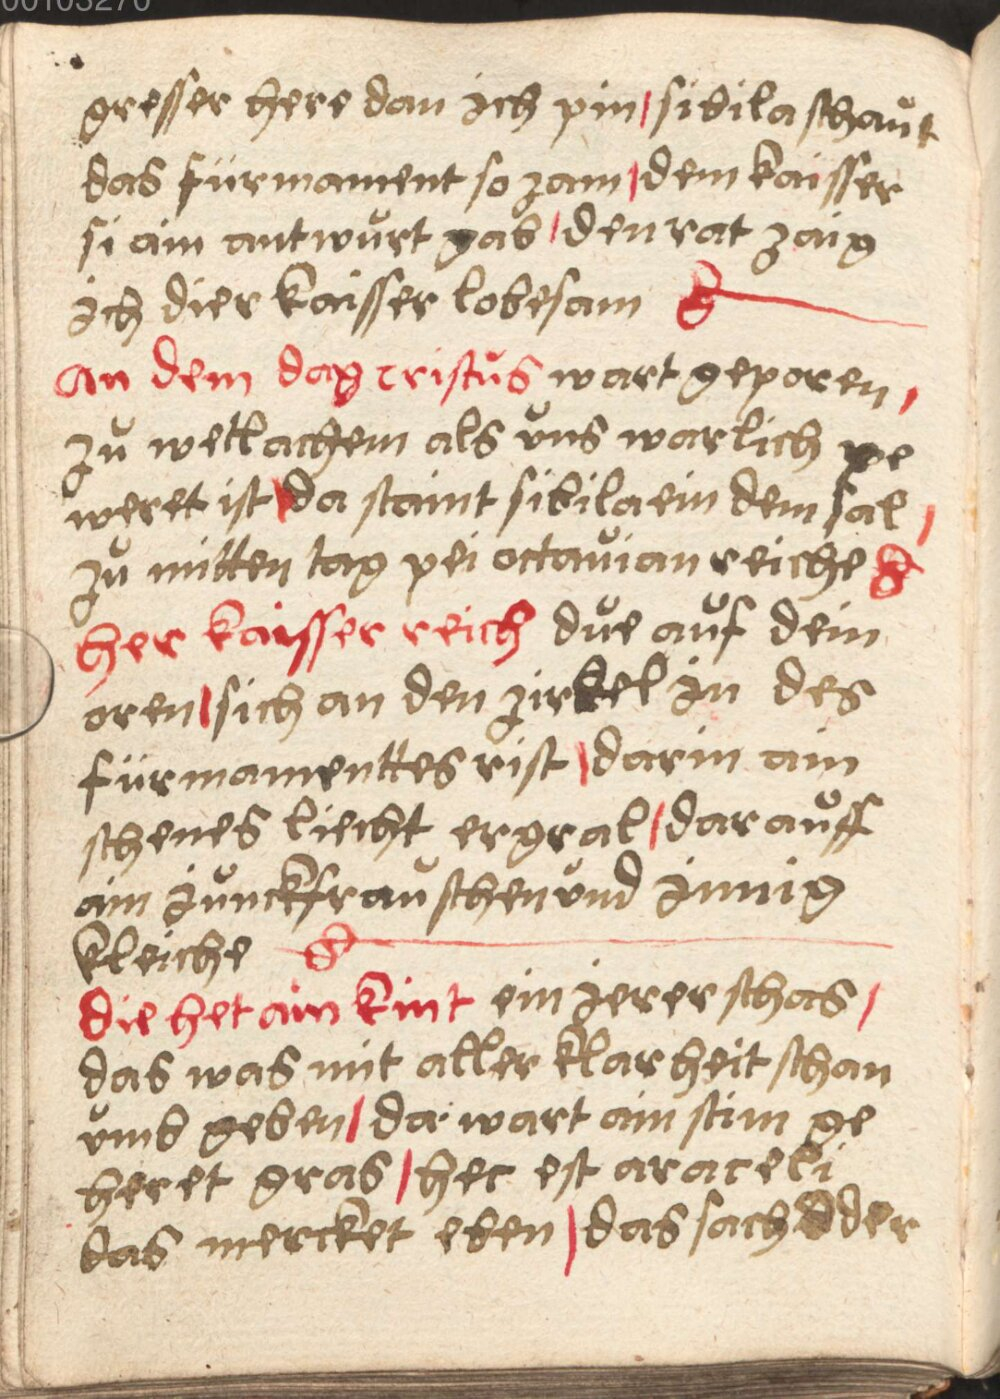 00103270
gresser here dan ich pin / sibila schaut
das fürmament so zam / dem kaisser
si ain antwurt gab / den rat zaig
ich dier kaisser lobesam
An dem dag cristus wart geporen /
zu wetlachem als vns warlich pe
weret ist / da staint sibila ein dem sal /
zu mitten tag pei octauian reiche
her kaisser reich due auf dein
oren / sich an den zirkel in des
fürmamenttes rist / darin ain
schenes liecht ergral / darauff
ain junckfrau schen vnd innig
kleiche
die het ain kint ein jerer schas /
das was mit aller klarheit schan
vmb geben / da wart ain stim ge
heret gras / hec est ara celi
das mercket eben / das sach der